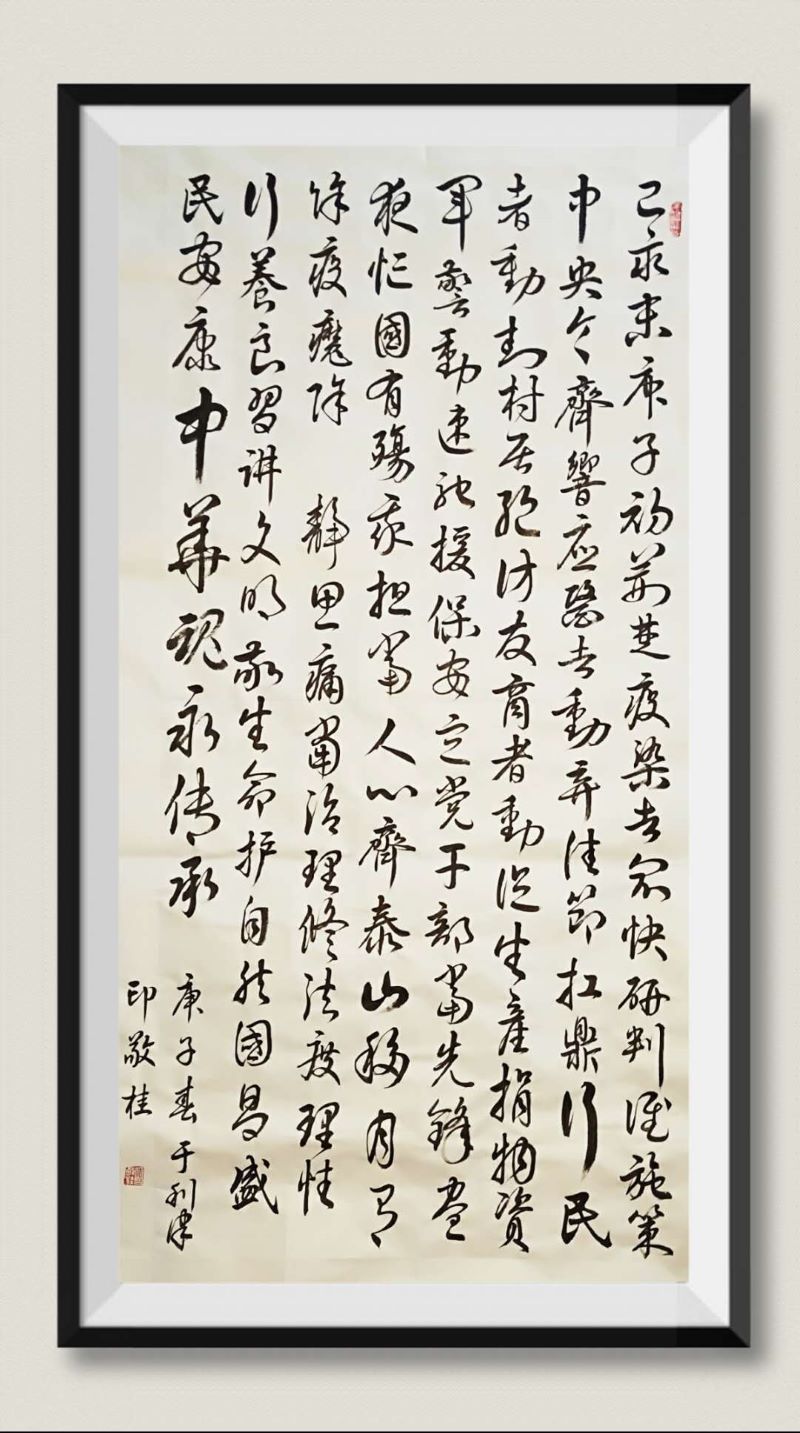 己亥末庚子初荆楚疫染去众快研判准施策
中央令齊響应醫者動弃佳節扛鼎行民
者動封村居絕访友商者動促生產捐物資
軍警動速馳援保安定党干部當先鋒晝
夜忙國有殤我担當人心齊泰山移月有
馀疫魔除 静思痛當治理修法度理性
行養良習讲文明敬生命护自然國昌盛
民安康中華魂永传承
庚子春于利津
印敬桂